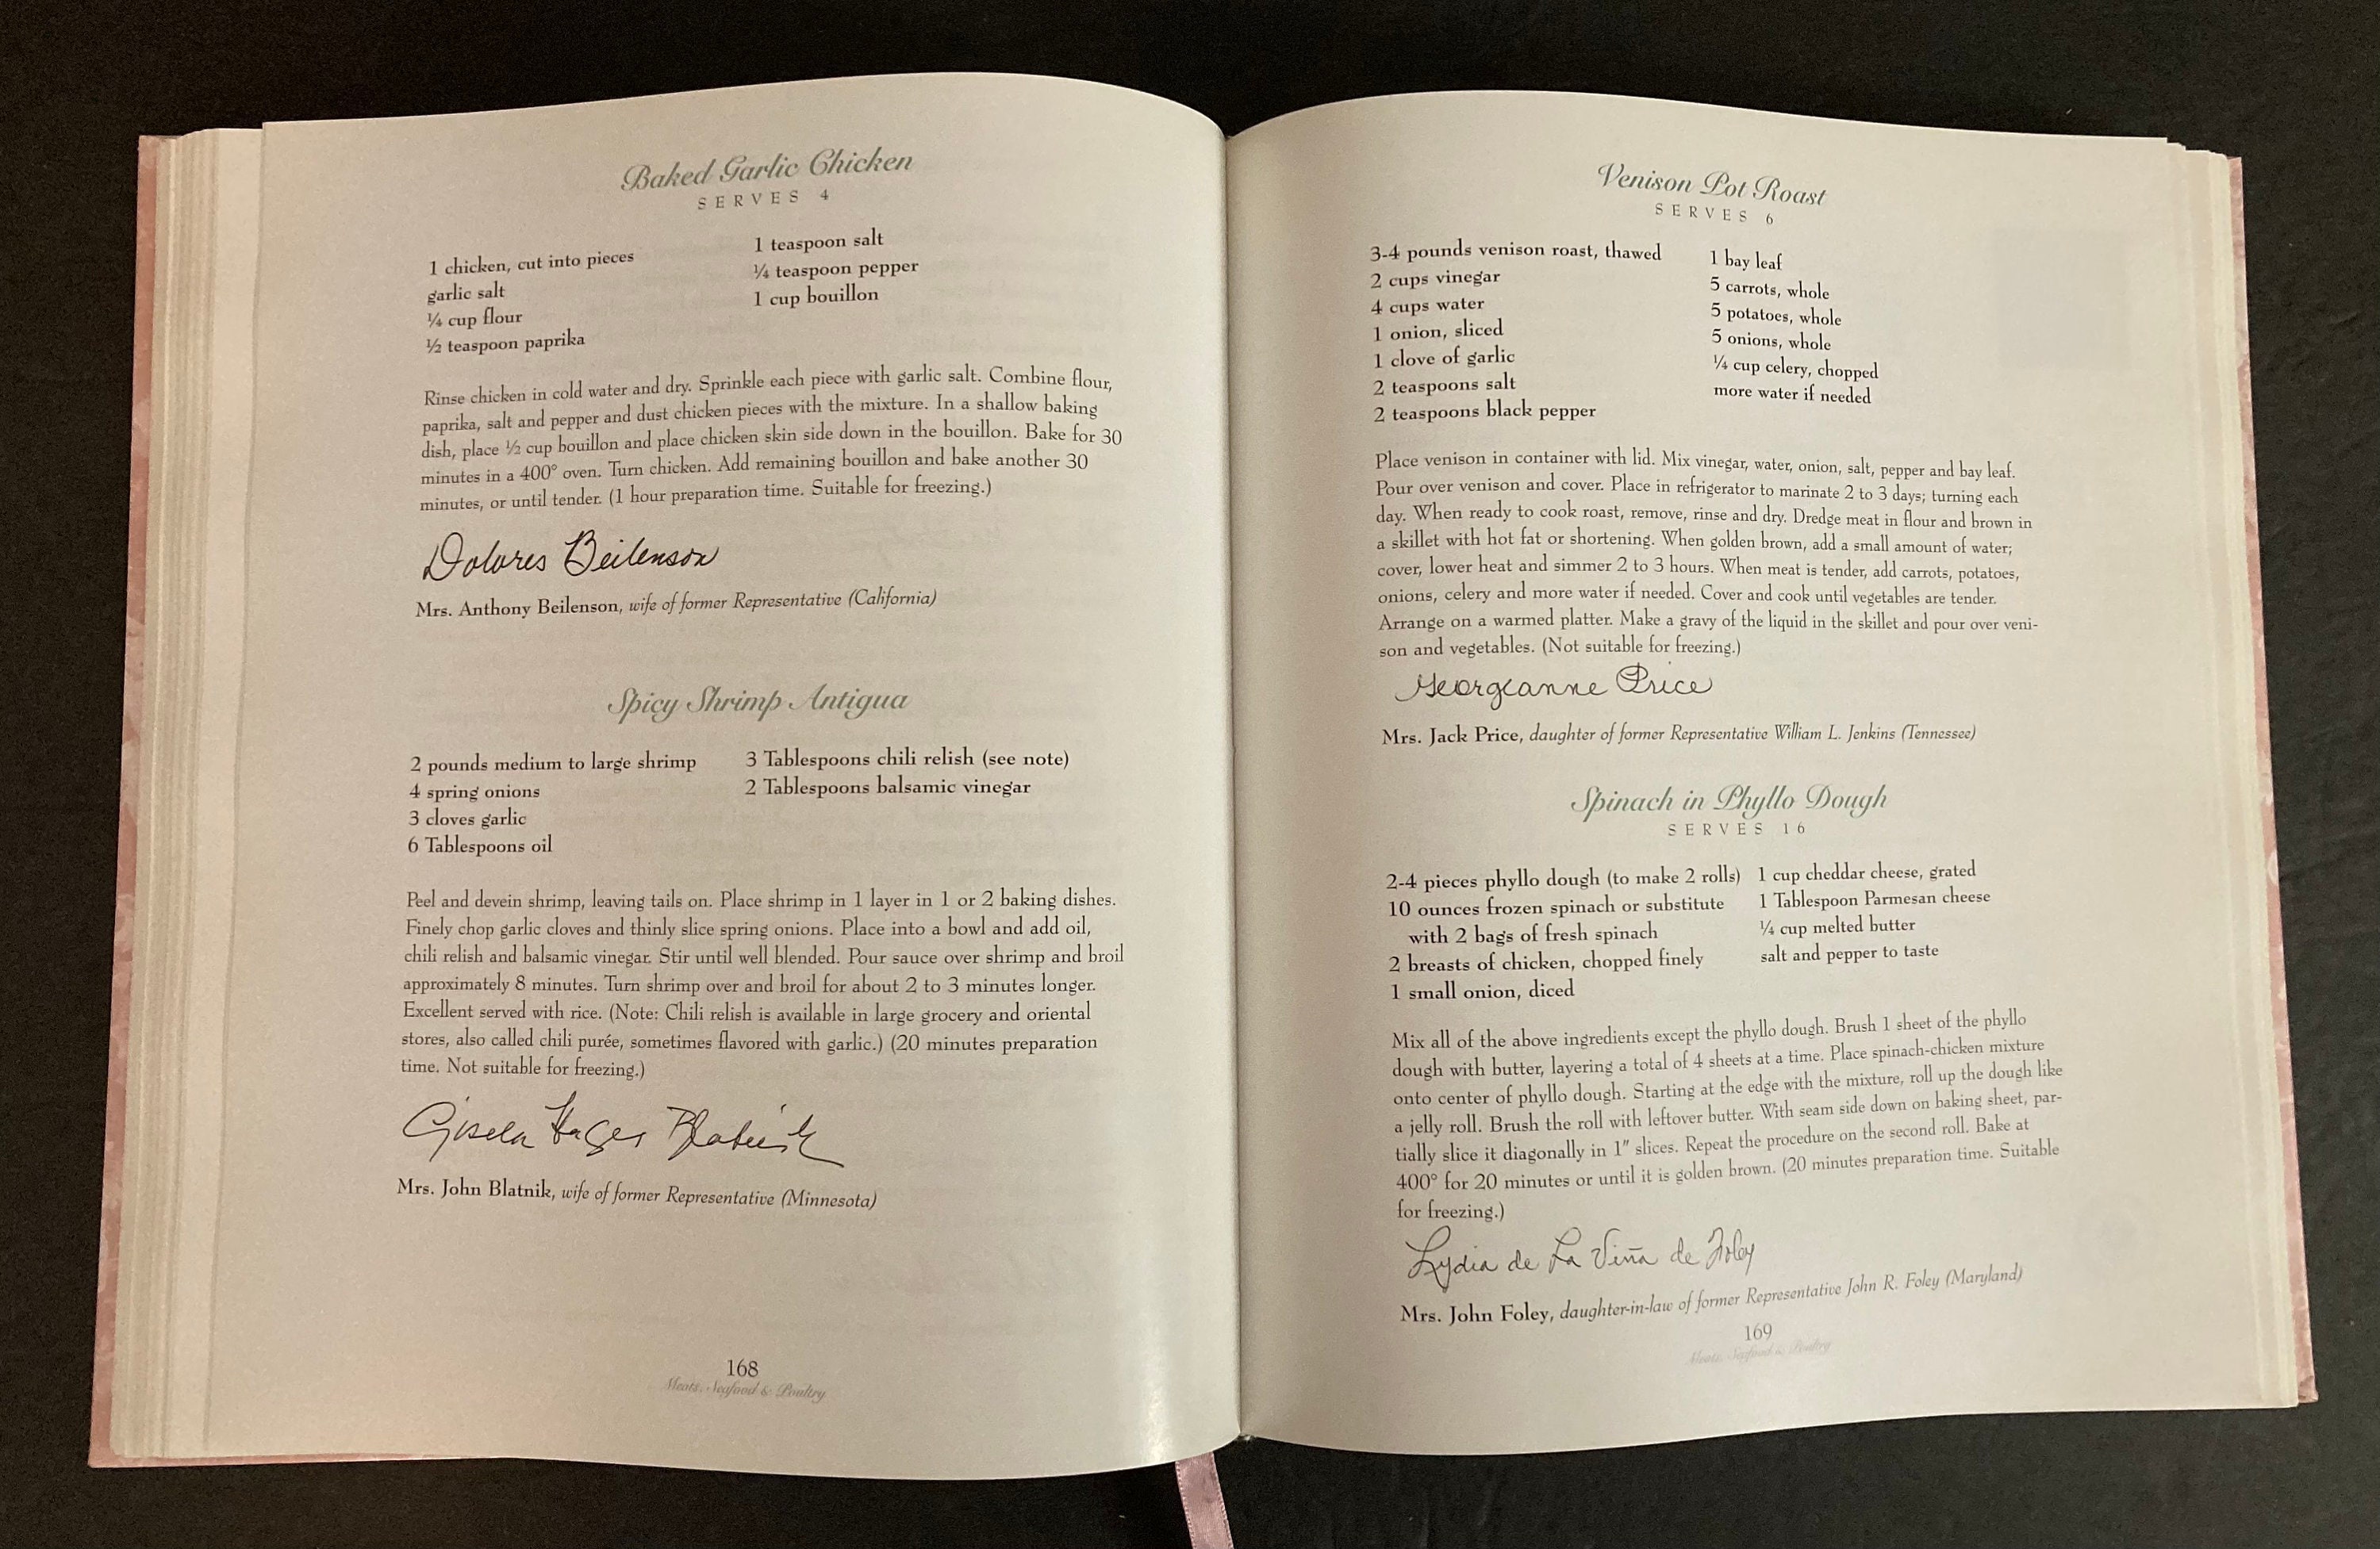 Baked Garlic Chicken
SERVES 4
1 chicken, cut into pieces
garlic salt
¼ cup flour
½ teaspoon paprika
1 teaspoon salt
¼ teaspoon pepper
1 cup bouillon
Rinse chicken in cold water and dry. Sprinkle each piece with garlic salt. Combine flour,
paprika, salt and pepper and dust chicken pieces with the mixture. In a shallow baking
dish, place ½ cup bouillon and place chicken skin side down in the bouillon. Bake for 30
minutes in a 400° oven. Turn chicken. Add remaining bouillon and bake another 30
minutes, or until tender. (1 hour preparation time. Suitable for freezing.)
Dolores Beilenson
Mrs. Anthony Beilenson, wife of former Representative (California)
Spicy Shrimp Antigua
2 pounds medium to large shrimp
4 spring onions
3 cloves garlic
6 Tablespoons oil
3 Tablespoons chili relish (see note)
2 Tablespoons balsamic vinegar
Peel and devein shrimp, leaving tails on. Place shrimp in 1 layer in 1 or 2 baking dishes.
Finely chop garlic cloves and thinly slice spring onions. Place into a bowl and add oil,
chili relish and balsamic vinegar. Stir until well blended. Pour sauce over shrimp and broil
approximately 8 minutes. Turn shrimp over and broil for about 2 to 3 minutes longer.
Excellent served with rice. (Note: Chili relish is available in large grocery and oriental
stores, also called chili purée, sometimes flavored with garlic.) (20 minutes preparation
time. Not suitable for freezing.)
Gisela Hager Blatnik
Mrs. John Blatnik, wife of former Representative (Minnesota)
168
Meats, Seafood & Poultry
Venison Pot Roast
SERVES 6
3-4 pounds venison roast, thawed
2 cups vinegar
4 cups water
1 onion, sliced
1 clove of garlic
2 teaspoons salt
2 teaspoons black pepper
1 bay leaf
5 carrots, whole
5 potatoes, whole
5 onions, whole
¼ cup celery, chopped
more water if needed
Place venison in container with lid. Mix vinegar, water, onion, salt, pepper and bay leaf.
Pour over venison and cover. Place in refrigerator to marinate 2 to 3 days; turning each
day. When ready to cook roast, remove, rinse and dry. Dredge meat in flour and brown in
a skillet with hot fat or shortening. When golden brown, add a small amount of water;
cover, lower heat and simmer 2 to 3 hours. When meat is tender, add carrots, potatoes,
onions, celery and more water if needed. Cover and cook until vegetables are tender.
Arrange on a warmed platter. Make a gravy of the liquid in the skillet and pour over veni-
son and vegetables. (Not suitable for freezing.)
Georgeanne Price
Mrs. Jack Price, daughter of former Representative William L. Jenkins (Tennessee)
Spinach in Phyllo Dough
SERVES 16
2-4 pieces phyllo dough (to make 2 rolls)
10 ounces frozen spinach or substitute
with 2 bags of fresh spinach
2 breasts of chicken, chopped finely
1 small onion, diced
1 cup cheddar cheese, grated
1 Tablespoon Parmesan cheese
¼ cup melted butter
salt and pepper to taste
Mix all of the above ingredients except the phyllo dough. Brush 1 sheet of the phyllo
dough with butter, layering a total of 4 sheets at a time. Place spinach-chicken mixture
onto center of phyllo dough. Starting at the edge with the mixture, roll up the dough like
a jelly roll. Brush the roll with leftover butter. With seam side down on baking sheet, par-
tially slice it diagonally in 1" slices. Repeat the procedure on the second roll. Bake at
400° for 20 minutes or until it is golden brown. (20 minutes preparation time. Suitable
for freezing.)
Lydia de La Viña de Foley
Mrs. John Foley, daughter-in-law of former Representative John R. Foley (Maryland)
169
Meats, Seafood & Poultry